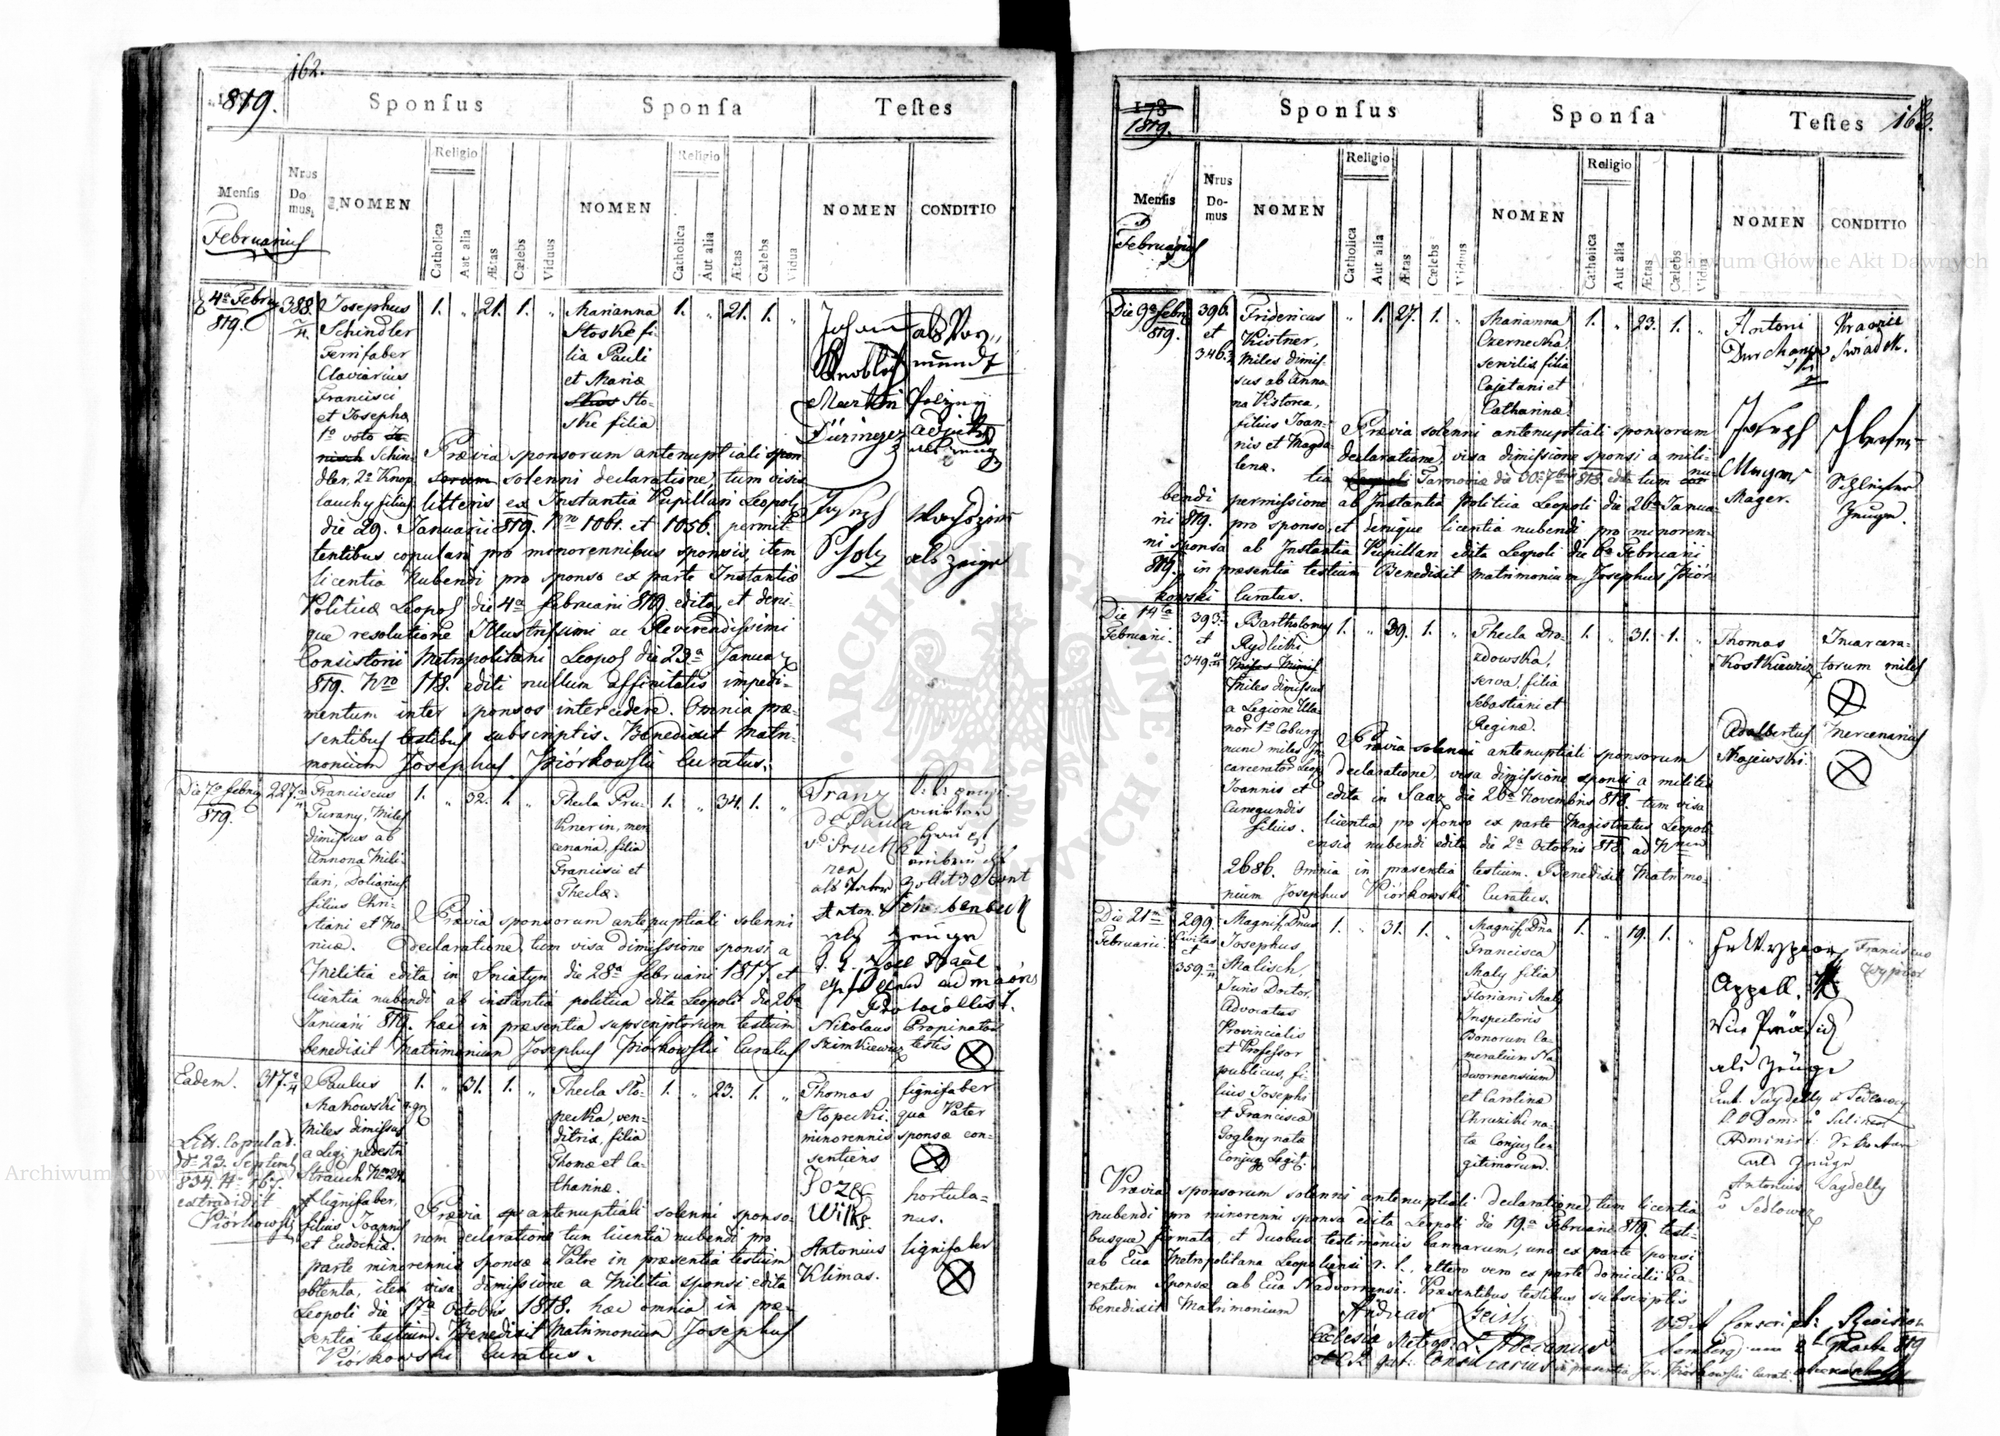 162.
819.
Sponsus
Sponsa
Testes
Mensis
Februarius
Nrus Domus
NOMEN
Religio
Catholica
Aut alia
Ætas
Cælebs
Viduus
NOMEN
Religio
Catholica
Aut alia
Ætas
Cælebs
Vidua
NOMEN
CONDITIO
4a Febru
819.
388.
Josephus
Schindler
Ferrifaber
Claviarius
Francisci
et Josephæ
1o voto
Schin
dler, 2o Knob
lauch filius
1. " 21. 1. "
Marianna
Stoske fi
lia Pauli
et Mariæ
Sto
ske filia
1. " 21. 1. "
Johann
Knobloch
als Vor„
mundt
Martin
Düringer
Joseph
Scholz
als Zeige
Prævia sponsorum antenuptiali
solenni declaratione, tum visis
litteris ex Instantia Pupillari Leopoli
die 29. Januarii 819. Nro 1061. et 1056. permit-
tentibus copulari pro minorennibus sponsis, item
licentia Nubendi pro sponso ex parte Instantiæ
Politicæ Leopol die 4a februarii 819. edita, et deni-
que resolutione Illustrissimi ac Reverendissimi
Consistorii Metropolitani Leopol die 23a Januar
819. Nro 118. editi nullum affinitatis impedi-
mentum inter sponsos intercedere. Omnia præ-
sentibus testibus subscriptis. Benedixit Matri-
monium Josephus Piórkowski Curatus.
Die 7a febru
819.
227.
Franciscus
Furany, Miles
dimissus ab
Annona Mili-
tari, Doliarius
filius Chri-
stiani et Mo-
nicæ.
1. " 32. 1. "
Thecla Pru-
knerin, mer
cenaria, filia
Francisci et
Theclæ.
1. " 34. 1. "
Franz
de Paula
Anton
als Zeuge
Nikolaus
Szimkiewicz
Propinator
testis
Prævia sponsorum antenuptiali solenni
declaratione, tum visa dimissione sponsi a
Militia edita in Sniatyn die 28a februarii 1817. et
licentia nubendi ab instantia politica edita Leopoli die 26a
Januarii 819. hæc in præsentia supscriptorum testium
benedixit Matrimonium Josephus Piórkowski Curatus
Eadem.
317.
Litt. Copulat.
do 23. Septem
834. N. 167.
extradidit
Piórkowski
Paulus
Makowski
Miles dimissus
a Legi. pedestri
Strauch Nro 24.
lignifaber,
filius Joannis
et Eudochiæ.
1. " 31. 1. "
Thecla Sto-
pecka, ven-
ditrix, filia
Thomæ et Ca-
tharinæ.
1. " 23. 1. "
Thomas
Stopecki.
minorennis
sentiens
lignifaber
qua Pater
sponsæ con-
Jozef
Wilk.
hortula-
nus.
Antonius
Klimas.
lignifaber
Prævia antenuptiali solenni sponso-
rum declaratione tum licentia nubendi pro
parte minorennis sponsæ a Patre in præsentia testium
obtenta, item visa dimissione a Militia sponsi edita
Leopoli die 17a Octobris 1818. hæc omnia in præ-
sentia testium. Benedixit Matrimonium Josephus
Piórkowski Curatus.
178
1819.
Sponsus
Sponsa
Testes
163.
Mensis
Februarius
Nrus Domus
NOMEN
Religio
Catholica
Aut alia
Ætas
Cælebs
Viduus
NOMEN
Religio
Catholica
Aut alia
Ætas
Cælebs
Vidua
NOMEN
CONDITIO
Die 9a febru
819.
396.
et
346.
Fridericus
Kistner,
Miles dimis-
sus ab Anno-
na Pistorea,
filius Joan-
nis et Magda-
lenæ.
" 1. 27. 1. "
Marianna
Czernecka,
servilis, filia
Cajetani et
Catharinæ.
1. " 23. 1. "
Antoni
Joseph
Mager.
Schleifer
Zeuge.
Prævia solenni antenuptiali sponsorum
declaratione, visa dimissione sponsi a mili-
tia Tarnoviæ die 30a 7bris 818. edita tum nu
bendi permissione ab Instantia Politica Leopoli die 26a Janua
rii 819. pro sponso, et denique licentia nubendi pro minoren-
ni sponsa ab Instantia Pupillari edita Leopoli die 6a Februarii
819. in præsentia testium Benedixit Matrimonium Josephus Piór-
kowski Curatus.
Die 14ta
Februarii.
393.
et
349.
Bartholomeus
Rydlicki,
Miles dimissus
a Legione Ulla-
nor 1o Coburg
nunc miles in-
carcerator Leop
Joannis et
Cunegundis
filius.
1. " 39. 1. "
Thecla Dro-
zdowska,
serva, filia
Sebastiani et
Reginæ.
1. " 31. 1. "
Thomas
Kostkiewicz
Incarcera-
torum miles
Adalbertus
Majewski
Mercenarius
Prævia solenni antenuptiali sponsorum
declaratione, visa dimissione sponsi a militia
edita in Saaz die 26a Novembris 818. tum visa
licentia pro sponso ex parte Magistratus Leopoli-
ensis nubendi edita die 2a Octobris 818. ad Nrum
2686. Omnia in præsentia testium. Benedixit Matrimo-
nium Josephus Piórkowski Curatus.
Die 21a
Februarii.
299.
Civitas
et
359.
Magnif. Dnus
Josephus
Malisch,
Juris Doctor,
Advocatus
Provincialis
et Professor
publicus, fi-
lius Josephi
et Francisca
Goglenj natæ
Conjug. Legit.
1. " 31. 1. "
Magnif. Dna
Francisca
Maly filia
Floriani Maly
Inspectoris
Bonorum Ca-
meralium Na
dwornensium
et Carolina
na-
tæ Conjug. le-
gitimorum.
1. " 19. 1. "
Fr Wypior
Franciscus
Wypior
Appell.
Vice Präsid
als Zeuge
als Zeuge
Antonius Saydelly
Prævia sponsorum solenni antenuptiali declaratione, tum licentia
nubendi pro minorenni sponsa edita Leopoli die 19a Februarii 819. testi-
busque firmata, et duobus testimoniis bannorum, uno ex parte sponsi
ab Ecca Metropolitana Leopoliensi r. l., altero vero ex parte domicilii Pa-
rentum Sponsæ ab Ecca Nadvornensi. Præsentibus testibus subscriptis
benedixit Matrimonium
Andreas
Ecclesiæ Metrop.
in præsentia Jos. Piórkowski Curati.
Archiwum Główne Akt Dawnych
ARCHIWUM GŁÓWNE AKT DAWNYCH
Archiwum Główne Akt Dawnych